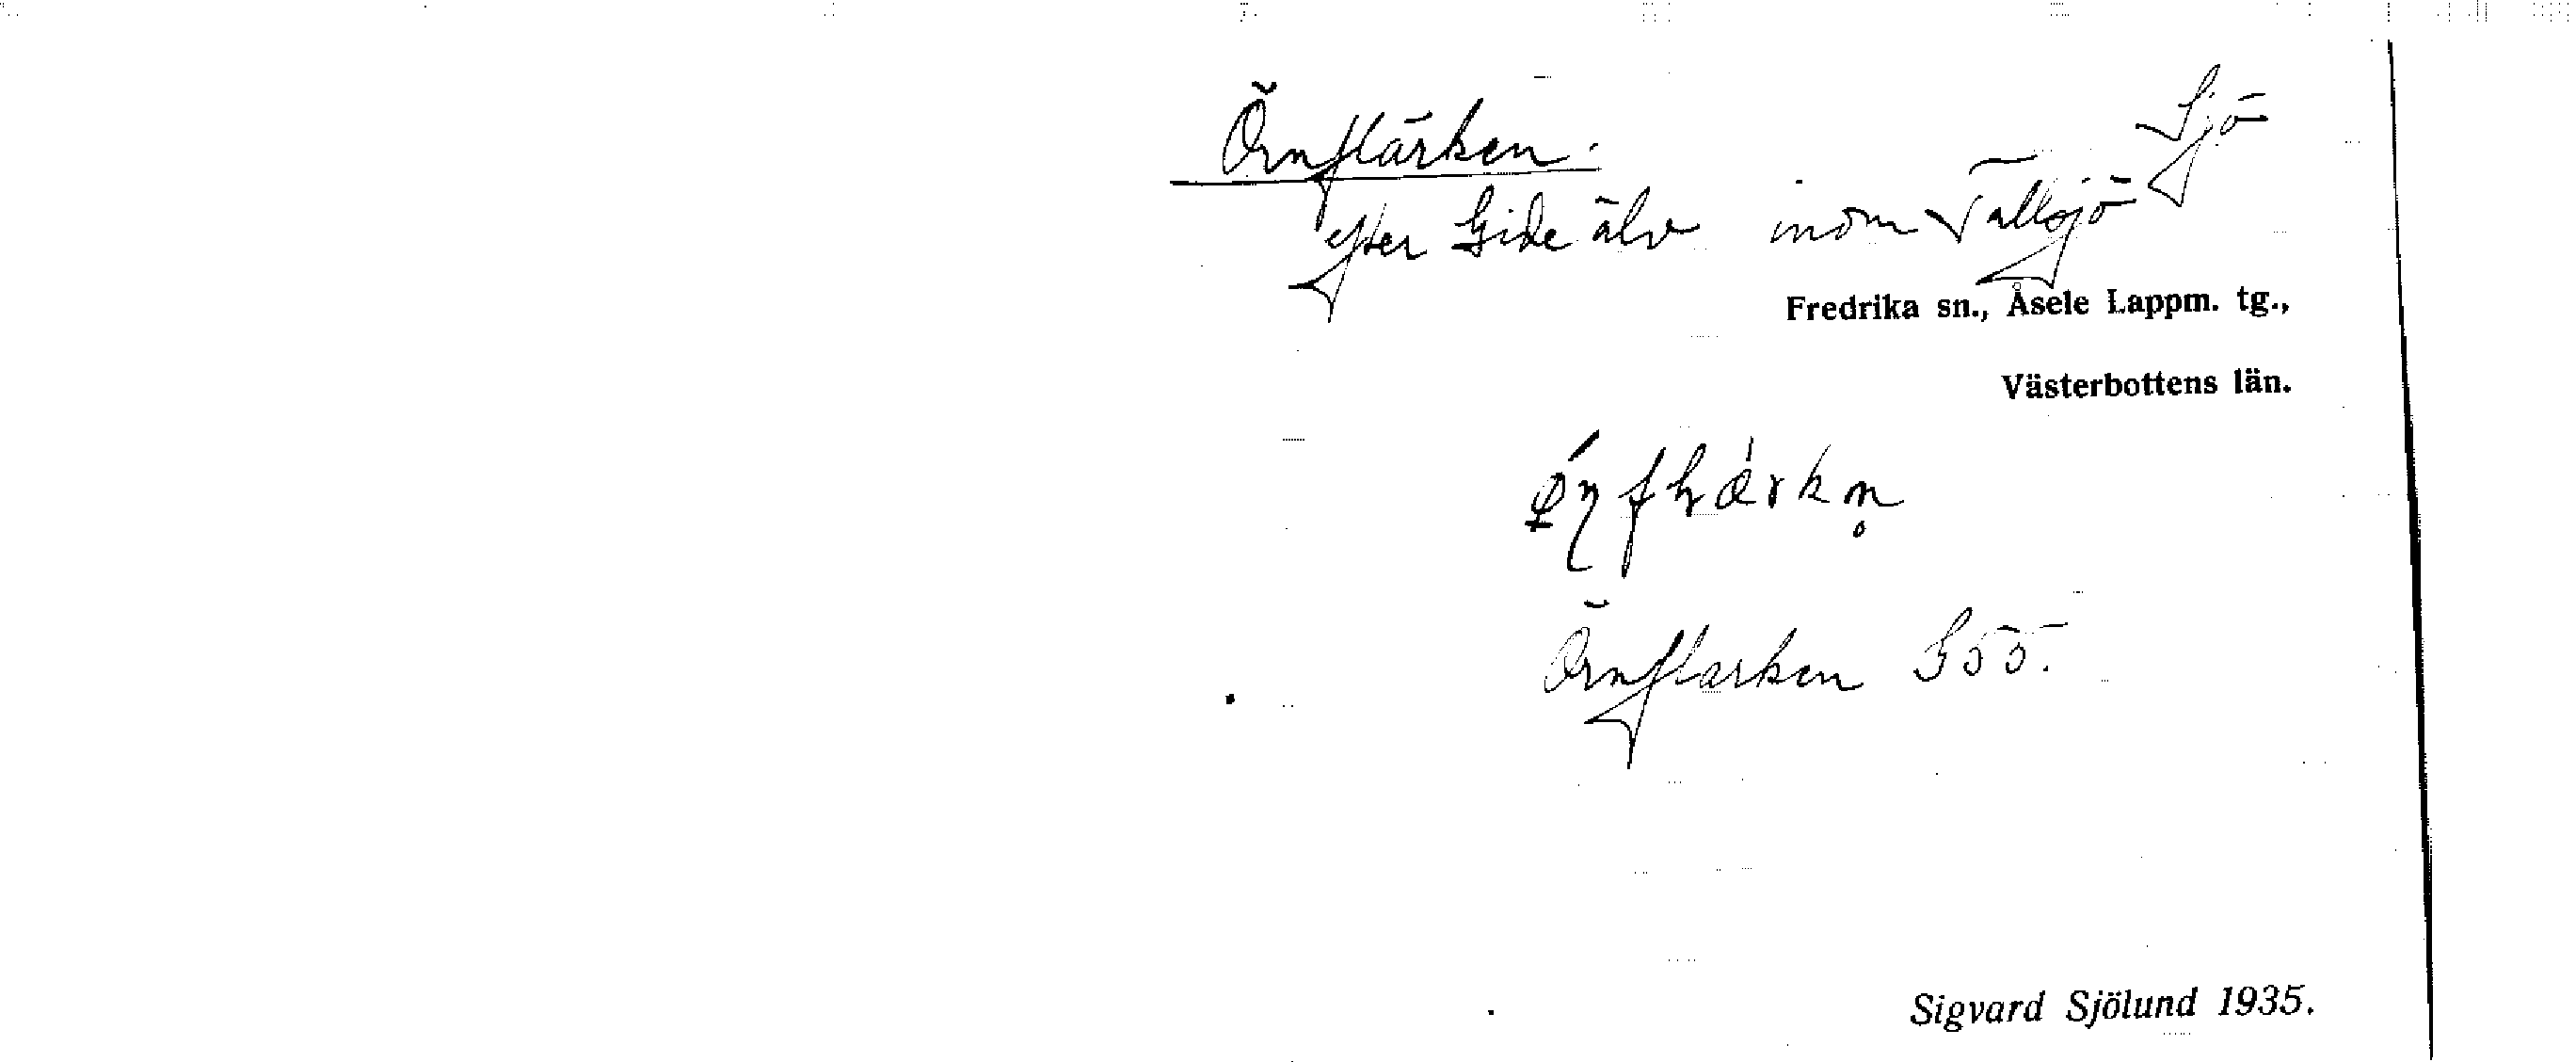 Örnflärken. Sjö
efter Gide älv inom Tallsjö
Fredrika sn., Åsele Lappm. tg.,
Västerbottens län.
Örnflarken G55.
Sigvard Sjölund 1935.